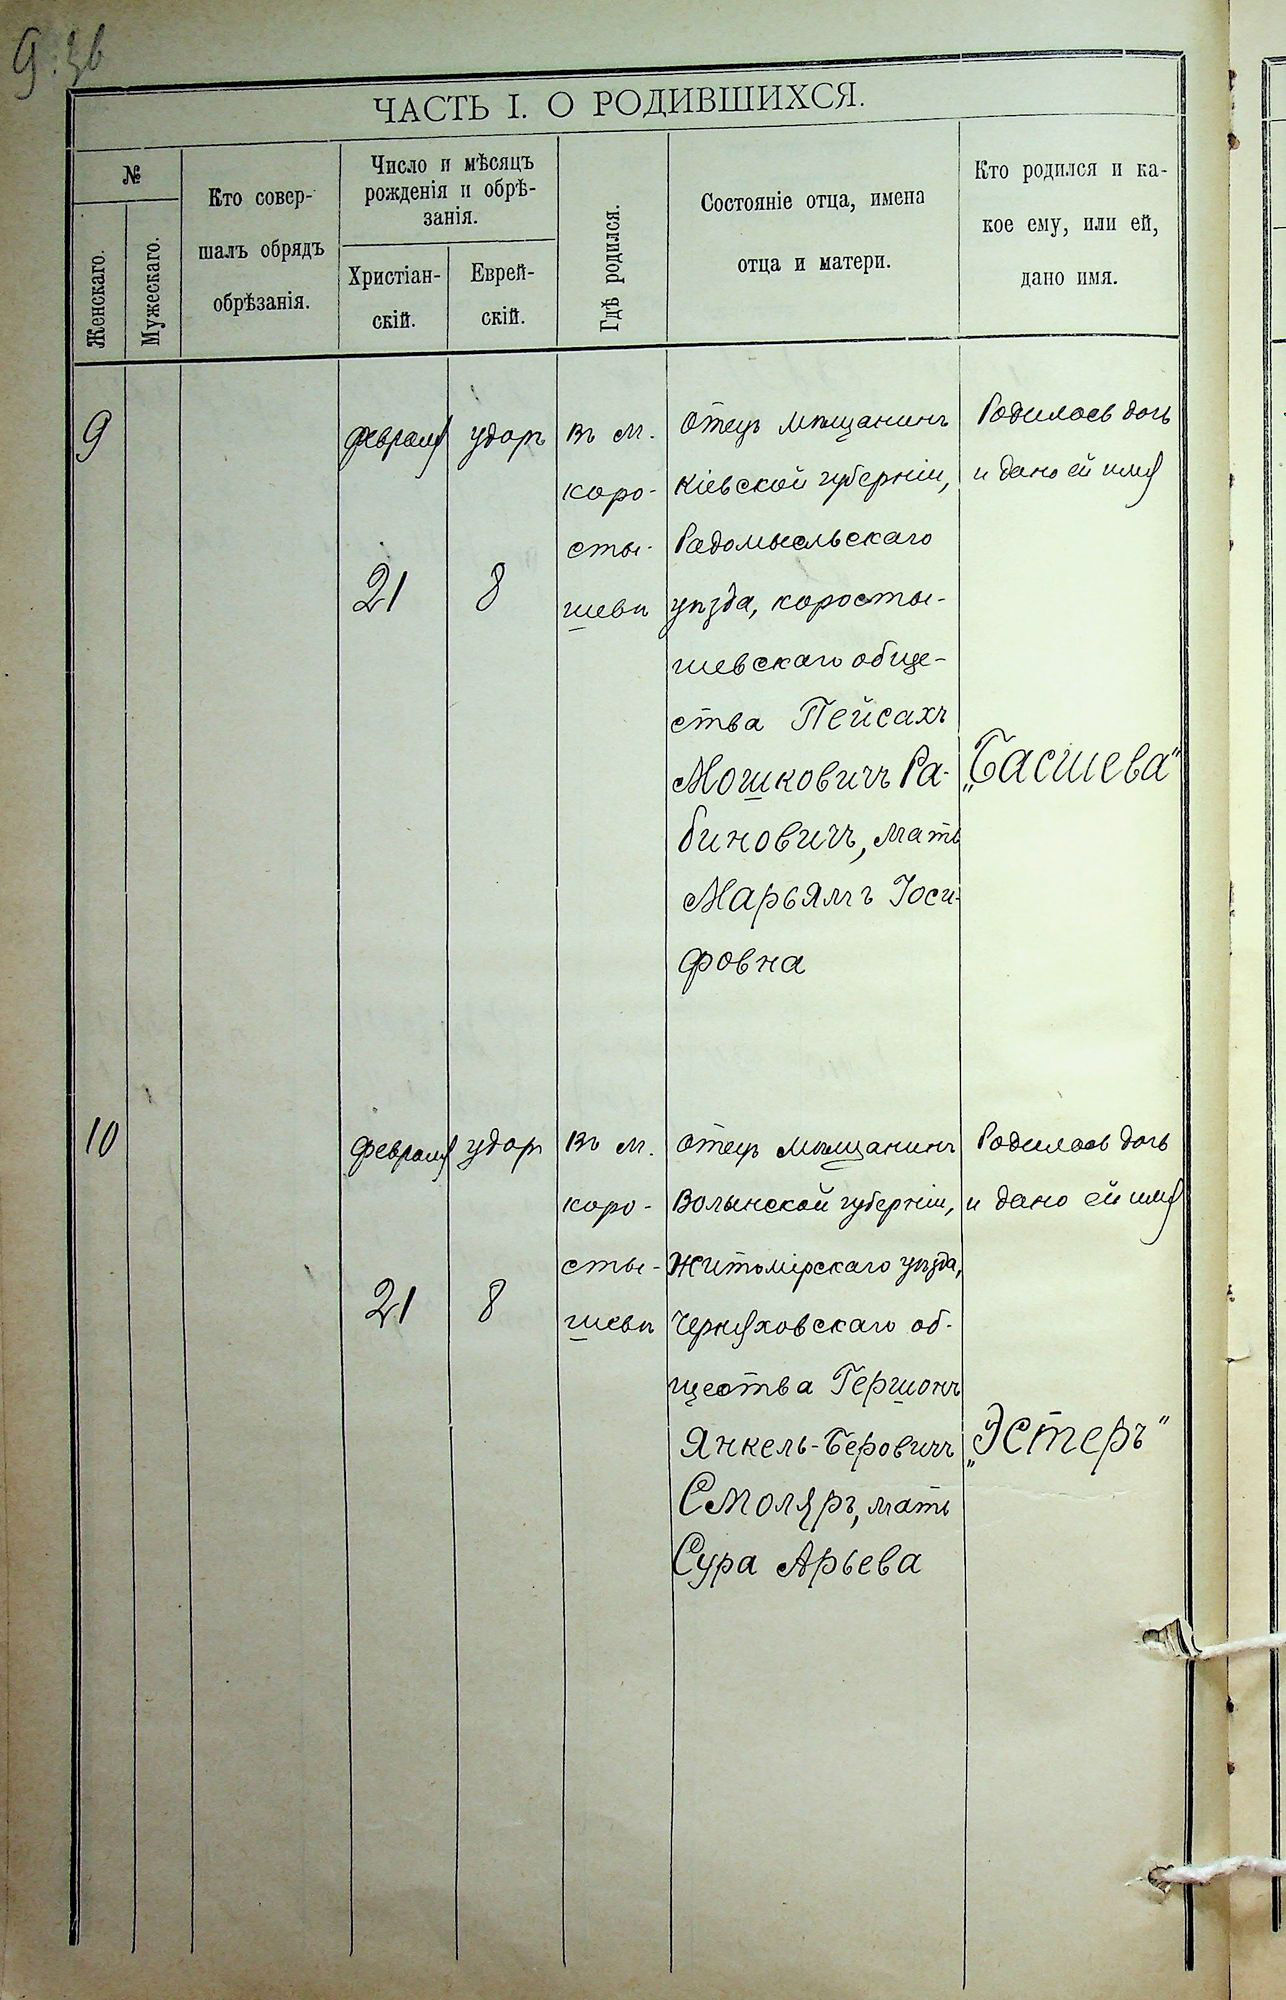 ЧАСТЬ I. О РОДИВШИХСЯ.
№
Женскаго.
Мужескаго.
Кто совер-
шалъ обрядъ
обрѣзанія.
Число и мѣсяцъ
рожденія и обрѣ-
занія.
Христіан-
скій.
Еврей-
скій.
Гдѣ родился.
Состояніе отца, имена
отца и матери.
Кто родился и ка-
кое ему, или ей,
дано имя.
9
февраля
21
удоръ
8
въ м.
коро-
сты-
шевѣ
Отецъ мѣщанинъ
Кіевской губерніи,
Радомысльскаго
уѣзда, коросты-
шевскаго обще-
ства Пейсахъ
Мошковичъ Ра-
биновичъ, мать
Марьямъ Іоси-
фовна
Родилась дочь
и дано ей имя
„Басшева“
10
февраля
21
удоръ
8
въ м.
коро-
сты-
шевѣ
Отецъ мѣщанинъ
Волынской губерніи,
Житомірскаго уѣзда,
Черняховскаго об-
щества Гершонъ
Янкель-Беровичъ
Смоляръ, мать
Сура Арьева
Родилась дочь
и дано ей имя
„Эстеръ“